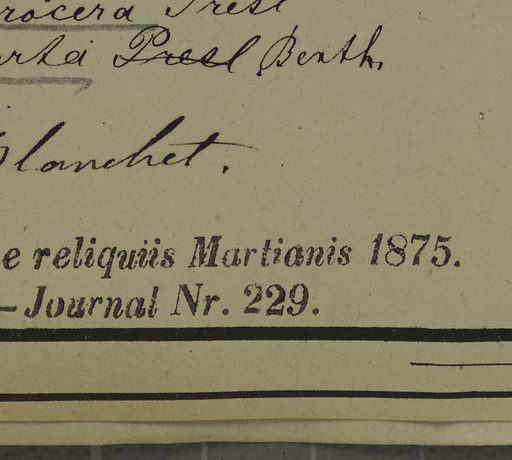 rocera Presl
erta Presl Benth.
Blanchet.
e reliquiis Martianis 1875.
–Journal Nr. 229.